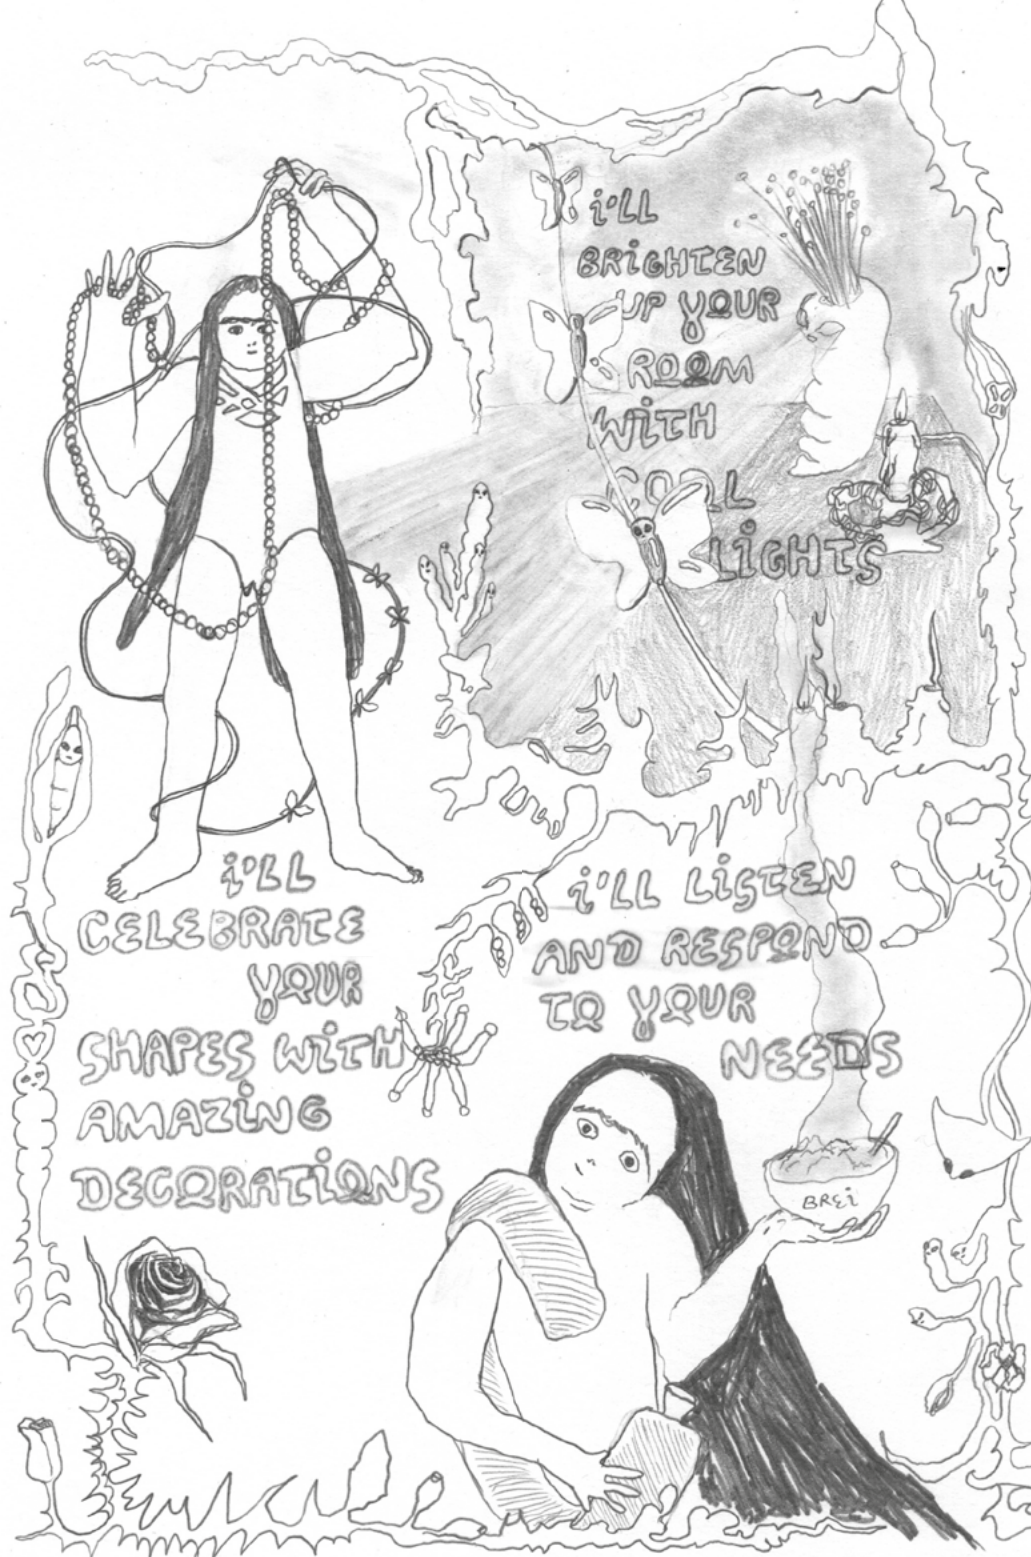 i'LL
BRiGHTEN
UP YOUR
ROOM
WiTH
COOL
LiGHTS
i'LL
CELEBRATE
YOUR
SHAPES WiTH
AMAZiNG
DECORATiONS
i'LL LiSTEN
AND RESPOND
TO YOUR
NEEDS
BREi